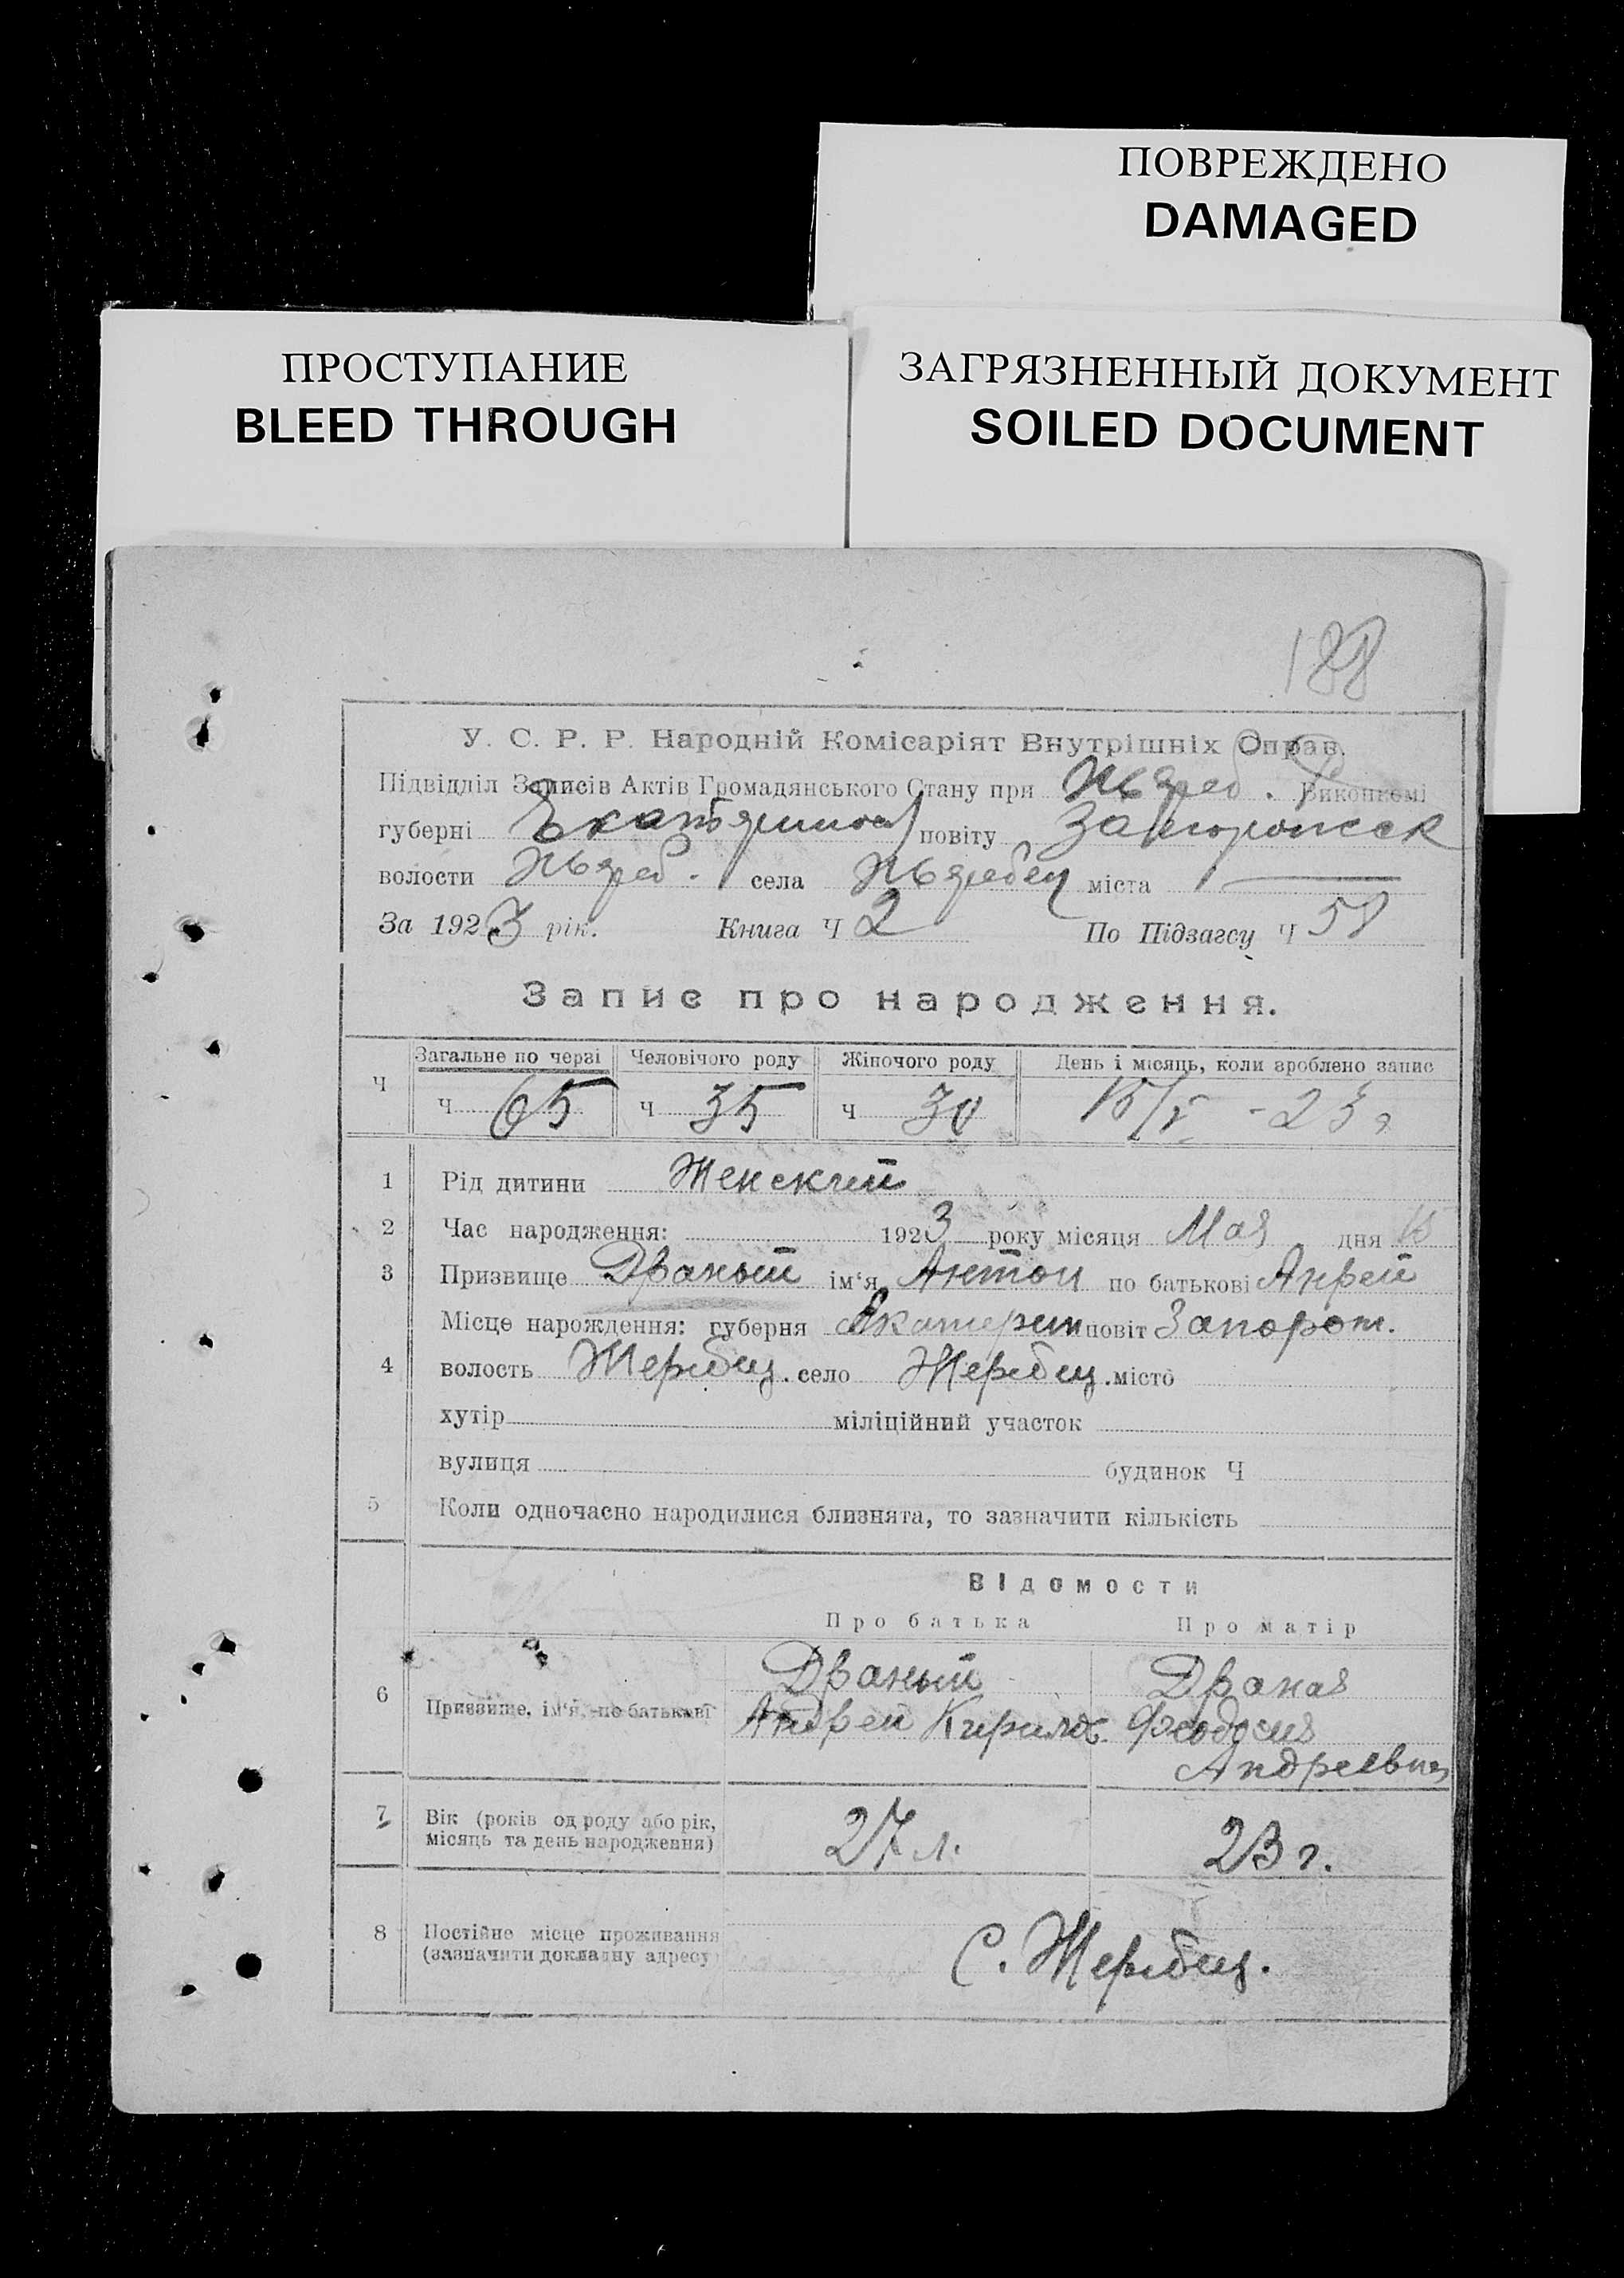 ПОВРЕЖДЕНО
DAMAGED
ПРОСТУПАНИЕ
BLEED THROUGH
ЗАГРЯЗНЕННЫЙ ДОКУМЕНТ
SOILED DOCUMENT
188
У. С. Р. Р. Народній Комісаріят Внутрішніх Справ.
Підвідділ Записів Актів Громадянського Стану при Жереб. Виконкомі
губерні Екатеринос повіту Запорожск
волости Жереб. села Жеребец міста
За 1923 рік. Книга Ч 2 По Підзагсу Ч 58
Запис про народження.
Ч Загальне по черзі Человічого роду Жіночого роду День і місяць, коли зроблено запис
Ч 65 Ч 35 Ч 30 15/V - 23 г
1 Рід дитини Женский
2 Час народження: 1923 року місяця Мая дня 15
3 Призвище Драный ім‘я Антон по батькові Анрей
Місце нарождення: губерня Екатерин повіт Запорож.
4 волость Жеребец. село Жеребец. місто
хутір міліційний участок
вулиця будинок Ч
5 Коли одночасно народилися близнята, то зазначити кількість
Відомости
Про батька Про матір
6 Призвище, ім‘я, по батькові Драный Драная
Андрей Кирилов. Феодосия
Андреевна
7 Вік (років од роду або рік, місяць та день народження) 27 л. 23 г.
8 Постійне місце проживання (зазначити докладну адресу) С. Жеребец.